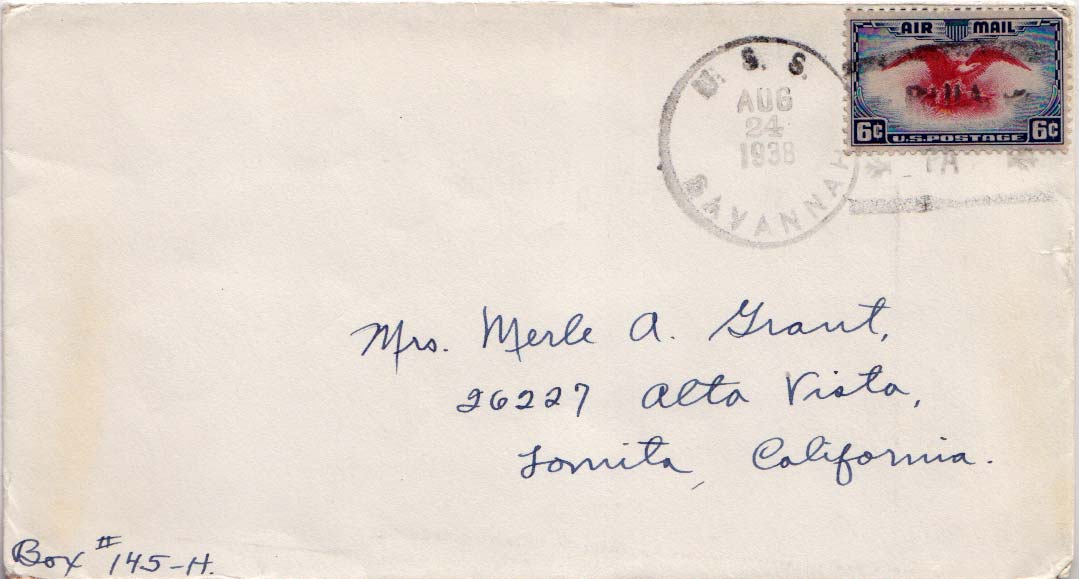 U. S. S.
AUG
24
1938
SAVANNAH
AIR MAIL
6¢ U.S.POSTAGE 6¢
PA
Mrs. Merle A. Grant,
26227 Alta Vista,
Lomita, California.
Box # 145-H.